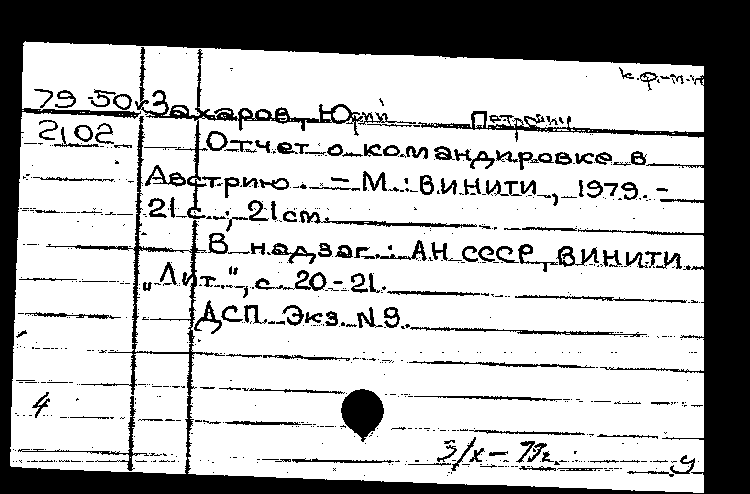 к.ф.-м.н
79-50к Захаров, Юрий Петрович
2.02 Отчет о командировке в
Австрию. – М.: ВИНИТИ, 1979. –
21 с.; 21 см.
В надзаг.: АН СССР, ВИНИТИ
„Лит“, с 20-21.
ДСП. Экз. N 9.
4
3/X – 79г.
у